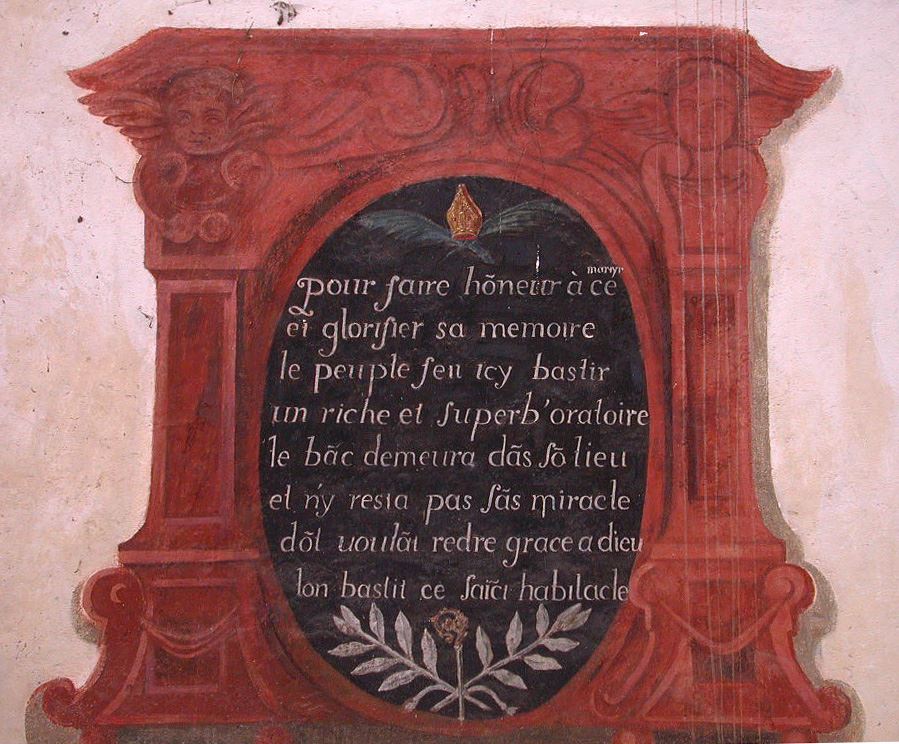 pour faire hõneur à ce martyr
et glorifier sa memoire
le peuple feu icy bastir
un riche et superb'oratoire
le bãc demeura dãs sõ lieu
et n'y resta pas sãs miracle
dõt voulãt redre grace a dieu
lon bastit ce saĩct habitacle